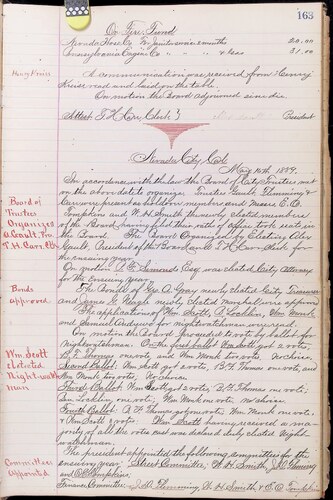 163
On Fire Fund
Nevada Hose Co for janitor service 2 months 20.00
Pennsylvania Engine Co " " " & Gas 31.00
A communication was received from Henry
Kruse read and laid on the table.
On motion the Board adjourned sine die.
Attest T H Carr, Clerk } President
Nevada City, Cal.
May 15th 1899.
In accordance with the law the Board of City Trustees met
on the above date to organize. Trustees Gault, Flemming &
Carr were present as holdover members and Messrs E. O.
Tompkins and W. H. Smith the newly elected members
of the Board, having filed their oaths of office took seats in
the Board. The Board Organized by Electing Alex
Gault, President of the Board and T H Carr, Clerk for
the ensuing year.
On motion Esq. was elected City Attorney
for the ensuing year.
The Bonds of Geo A. Gray newly elected City Treasurer
and James G. Neagle newly elected Marshal, were approved
The applications of Wm Scott, S. Locklin, Wm Monk
and Samuel Andrews for nightwatchman, were read.
On motion the Board proceeded to vote by ballot for
Nightwatchman. On the first ballot Wm Scott got 2 votes,
B. F. Thomas one vote, and Wm Monk two votes, No choice.
Second Ballot. Wm Scott got 2 votes, B. F. Thomas one vote, and
Wm Monk two votes. No choice.
Third Ballot. Wm Scott got 2 votes, B. F. Thomas one vote,
Locklin one vote, Wm Monk one vote no choice
Fourth Ballot. B. F. Thomas got one vote, Wm Monk one vote,
& Wm Scott 3 votes. Wm Scott having received a ma-
jority of all the votes cast was declared duly elected Night-
watchman.
The president appointed the following committees for the
ensuing year: Street Committee, W. H. Smith, Flemming
and E. O. Tompkins
Finance Committee: Flemming, W. H. Smith, & E. O.
Henry Kruse
Board of
Trustees
Organizes
A Gault, Pres
T. H. Carr, Clk
Bonds
approved
Wm. Scott
Elected
Night watch
man
Committees
appointed